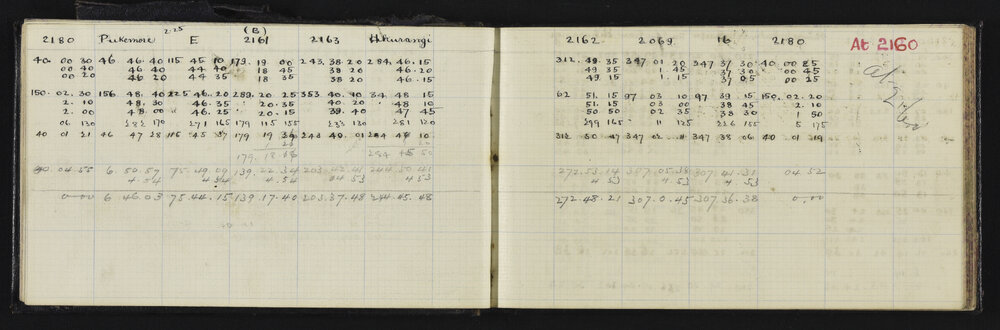 2.25
(B)
2180 Pukemore E 2161 2163 Hikurangi
40. 00 30 46 46. 40 115 45 10 179. 19 00 243. 38 20 284. 46. 15
00 40 46 40 44 40 18 45 38 20 46. 20
00 20 46 20 44 35 18 35 38 20 46. 15
150. 02. 30 156. 48. 40 225 46. 20 289. 20. 25 353 40. 20 34. 48 15
2. 10 48. 30 46. 35 20. 35 40. 20 48 10
2. 00 48. 00 46. 25 20. 15 39. 40 47 45
06 130 282 170 271 165 179 115 155 233 120 281 120
40 01 21 46 47 28 115 45 37 179 19 36 243 40. 01 284 48 10
179. 18 284 45 50
40. 04. 55 6 50. 57 75. 49. 09 139. 22. 34 203 42. 41 244. 50 41
4 54 4 54 4. 54 4 53 4 53
0. 00 6 46. 03 75. 44. 15 139. 17. 40 203. 37. 48 244. 45. 48
2162 2069 16 2180
At 2160
312. 49. 35 347 01 20 347 37 30 40 00 25
49 35 1. 45 37 30 00 45
49. 15 1. 15 37 05 00 25
62 51. 15 97 03 10 97 39. 15 150. 02. 20
51. 15 03 00 38 45 2. 10
50 50 02 35 38 30 1 50
299 165 11 125 226 155 5 175
312 50 347 02. 347 38 06 40 01 19
272. 53. 14 307. 05. 38 307. 41. 31 04 52
4 53 4 53 4. 53
272. 48. 21 307. 0. 45 307. 36. 38 0. 00